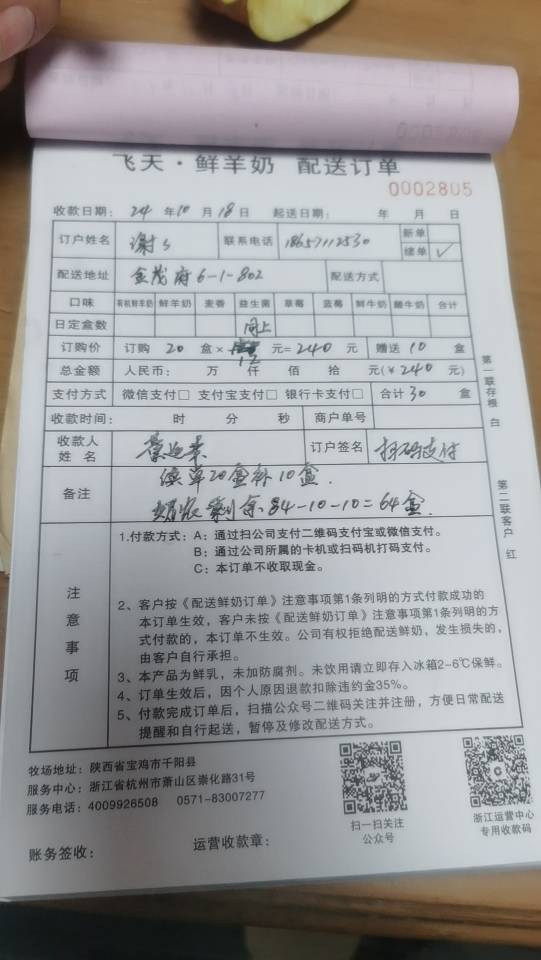 飞天·鲜羊奶 配送订单
0002805
收款日期： 24 年 10 月 18 日 起送日期： 年 月 日
订户姓名 谢 联系电话 18657112530 新单
续单 ✓
配送地址 金茂府 6-1-802 配送方式
口味 有机鲜羊奶 鲜羊奶 麦香 益生菌 草莓 蓝莓 鲜牛奶 酸牛奶 合计
日定盒数 同上
订购价 订购 20 盒× 12 元= 240 元 赠送 10 盒
总金额 人民币： 万 仟 佰 拾 元(￥240 元)
支付方式 微信支付□ 支付宝支付□ 银行卡支付□ 合计 30 盒
收款时间： 时 分 秒 商户单号
收款人
姓 名 订户签名 扫码支付
备注 续单20盒补10盒.
剩余84-10-10=64盒.
第一联存根 白
第二联客户 红
注意事项
1.付款方式：A：通过扫公司支付二维码支付宝或微信支付。
B：通过公司所属的卡机或扫码机打码支付。
C：本订单不收取现金。
2、客户按《配送鲜奶订单》注意事项第1条列明的方式付款成功的
本订单生效，客户未按《配送鲜奶订单》注意事项第1条列明的方
式付款的，本订单不生效。公司有权拒绝配送鲜奶，发生损失的，
由客户自行承担。
3、本产品为鲜乳，未加防腐剂。未饮用请立即存入冰箱2~6℃保鲜。
4、订单生效后，因个人原因退款扣除违约金35%。
5、付款完成订单后，扫描公众号二维码关注并注册，方便日常配送
提醒和自行起送，暂停及修改配送方式。
牧场地址：陕西省宝鸡市千阳县
服务中心：浙江省杭州市萧山区崇化路31号
服务电话：4009926508 0571-83007277
扫一扫关注
公众号
浙江运营中心
专用收款码
账务签收： 运营收款章：